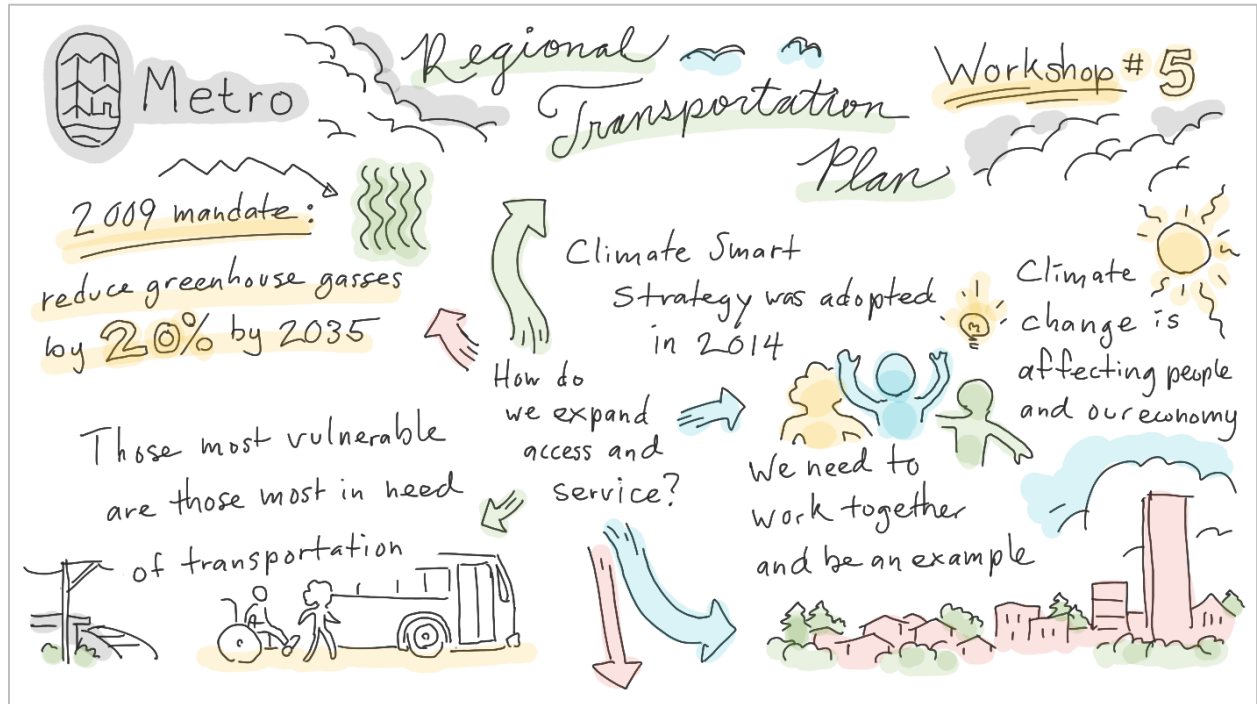 Metro
Regional
Transportation
Plan
Workshop # 5
2009 mandate:
reduce greenhouse gasses
by 20% by 2035
Climate Smart
Strategy was adopted
in 2014
Climate
change is
affecting people
and our economy
How do
we expand
access and
service?
Those most vulnerable
are those most in need
of transportation
We need to
work together
and be an example